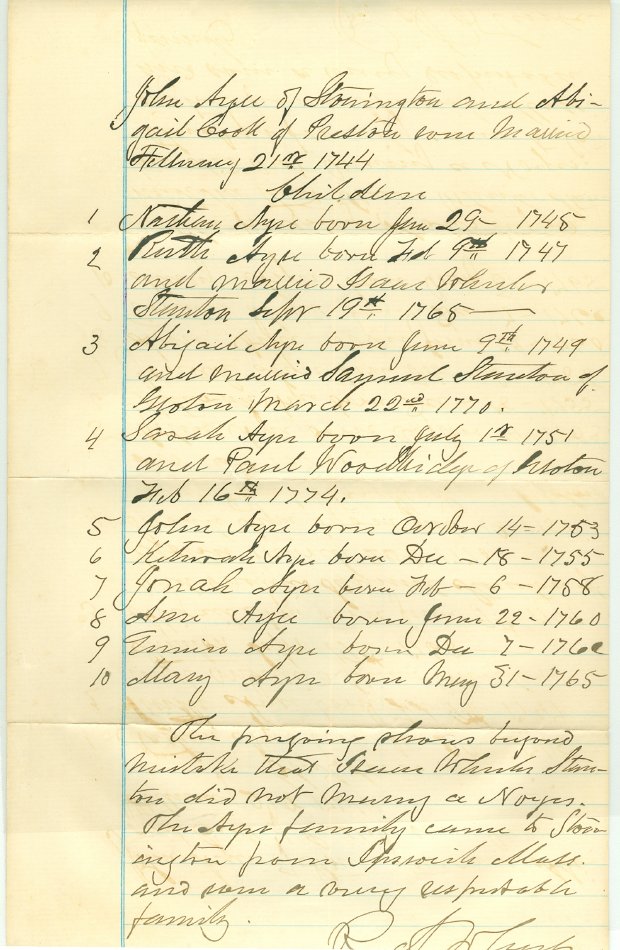 John Ayer of Stonington and Abi-
gail Cook of Preston were Married
February 21st 1744
Children
1 Nathan Ayer born Jan 29 - 1745
2 Ruth Ayer born Feb 9th 1747
and married Isaac Wheeler
Stanton Sept 19th 1765 —
3 Abigail Ayer born June 9th 1749
and married Samuel Stanton of
Groton March 22nd 1770.
4 Sarah Ayer born July 1st 1751
and Paul Woodbridge of Groton
Feb 16th 1774.
5 John Ayer born October 14 - 1753
6 Ayer born Dec - 18 - 1755
7 Jonah Ayer born Feb - 6 - 1758
8 Ayer born June 22 - 1760
9 Ayer born Dec 7 - 1762
10 Mary Ayer born May 31 - 1765
The forgoing shows beyond
mistake that Isaac Wheeler Stan-
ton did not marry a Noyes.
The Ayer family came to Ston-
ington from Ipswich Mass.
and were a very respectable
family.